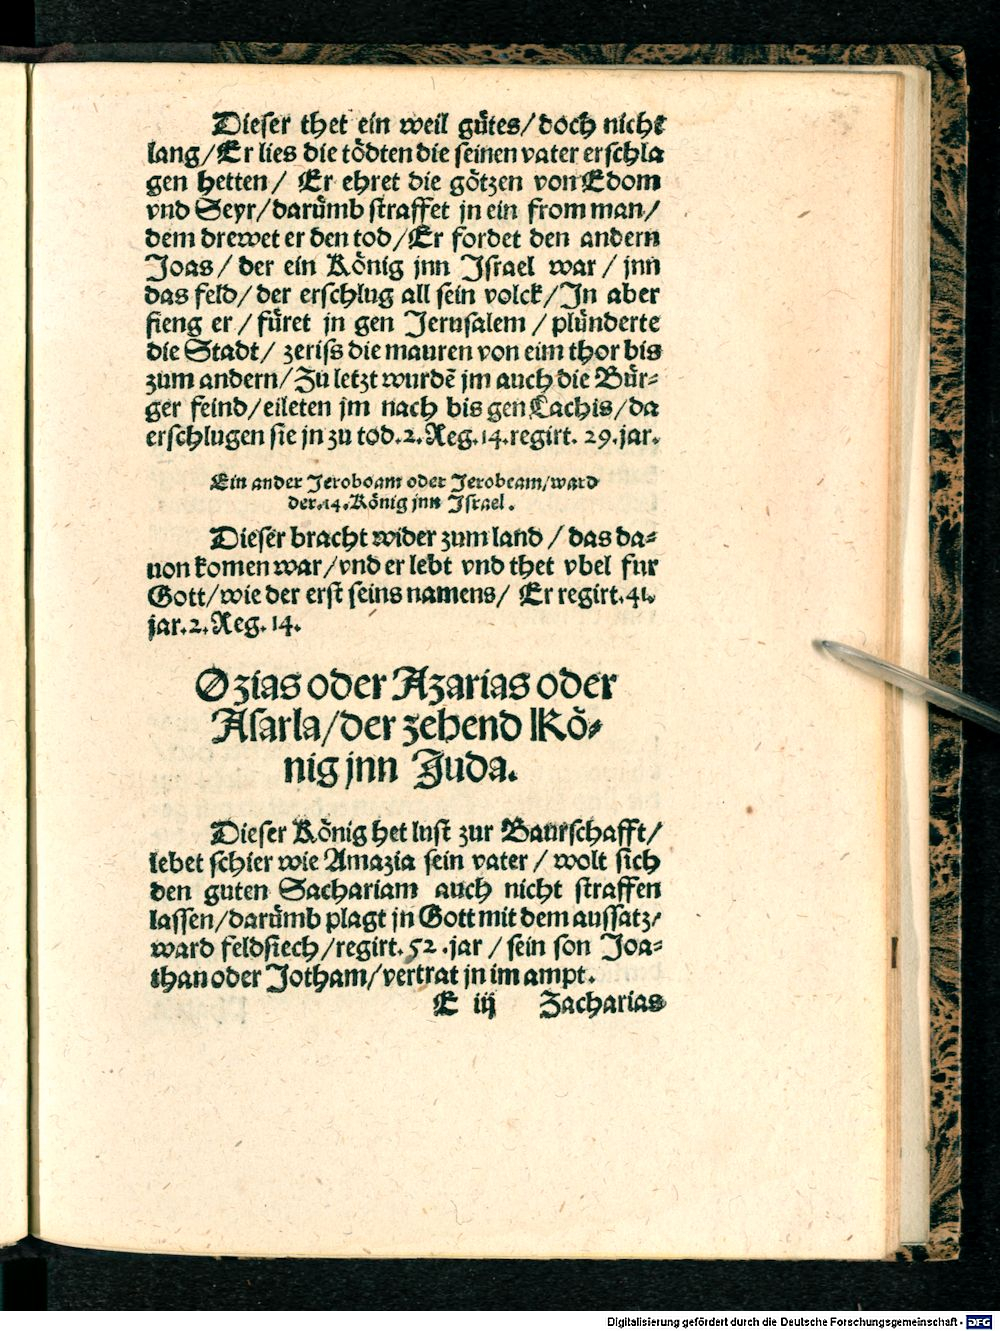 Dieser thet ein weil gůtes/doch nicht
lang/Er lies die tödten die seinen vater erschla
gen hetten/ Er ehret die götzen von Edom
vnd Seyr/darůmb straffet jn ein from man/
dem drewet er den tod/Er fordet den andern
Joas/ der ein König jnn Israel war/ jnn
das feld/der erschlug all sein volck/In aber
fieng er/ füret jn gen Jerusalem/ plünderte
die Stadt/ zeriss die mauren von eim thor bis
zum andern/Zu letzt wurdē jm auch die Bür⸗
ger feind/eileten jm nach bis gen Lachis/da
erschlugen sie jn zu tod.2.Reg.14.regirt. 29.jar.
Ein ander Jeroboam oder Jerobeam/ward
der.14.König jnn Israel.
Dieser bracht wider zum land/ das da⸗
uon komen war/vnd er lebt vnd thet vbel fur
Gott/wie der erst seins namens/ Er regirt.41.
jar.2.Reg.14.
Ozias oder Azarias oder
Asarla/der zehend Kö⸗
nig jnn Juda.
Dieser König het lust zur Baurschafft/
lebet schier wie Amazia sein vater/ wolt sich
den guten Sachariam auch nicht straffen
lassen/darůmb plagt jn Gott mit dem aussatz/
ward feldsiech/regirt.52.jar/ sein son Joa⸗
than oder Jotham/vertrat jn im ampt.
E iij Zacharias
Digitalisierung gefördert durch die Deutsche Forschungsgemeinschaft - DFG